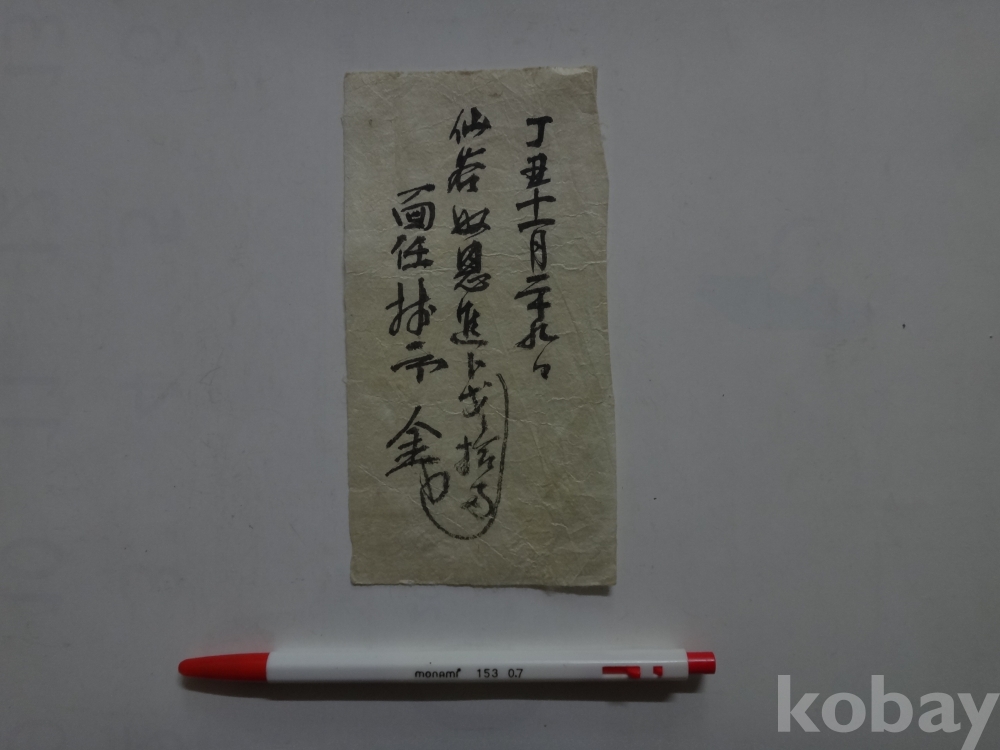 丁丑十一月二十九日
仙岩奴恩進卜戔拾両
面任捄示 金
monami 153 0.7
kobay